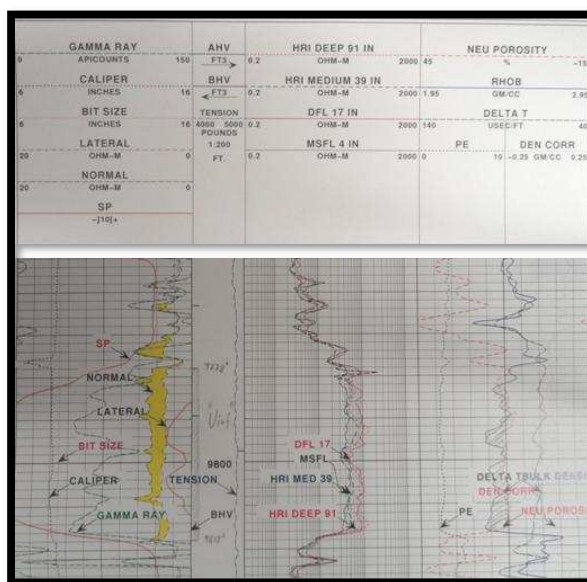 GAMMA RAY
0 APICOUNTS 150
CALIPER
6 INCHES 16
BIT SIZE
6 INCHES 16
LATERAL
20 OHM-M 0
NORMAL
20 OHM-M 0
SP
-]10[+
AHV
FT3
BHV
FT3
TENSION
4000 5000
POUNDS
1:200
FT.
HRI DEEP 91 IN
0.2 OHM-M 2000
HRI MEDIUM 39 IN
0.2 OHM-M 2000
DFL 17 IN
0.2 OHM-M 2000
MSFL 4 IN
0.2 OHM-M 2000
NEU POROSITY
45 % -15
RHOB
1.95 GM/CC 2.95
DELTA T
140 USEC/FT 40
PE DEN CORR
0 10 -0.25 GM/CC 0.25
SP
NORMAL
LATERAL
BIT SIZE
CALIPER
GAMMA RAY
9800
TENSION
BHV
DFL 17
MSFL
HRI MED 39
HRI DEEP 91
DELTA T BULK DENSI
DEN CORR
PE
NEU POROSITY